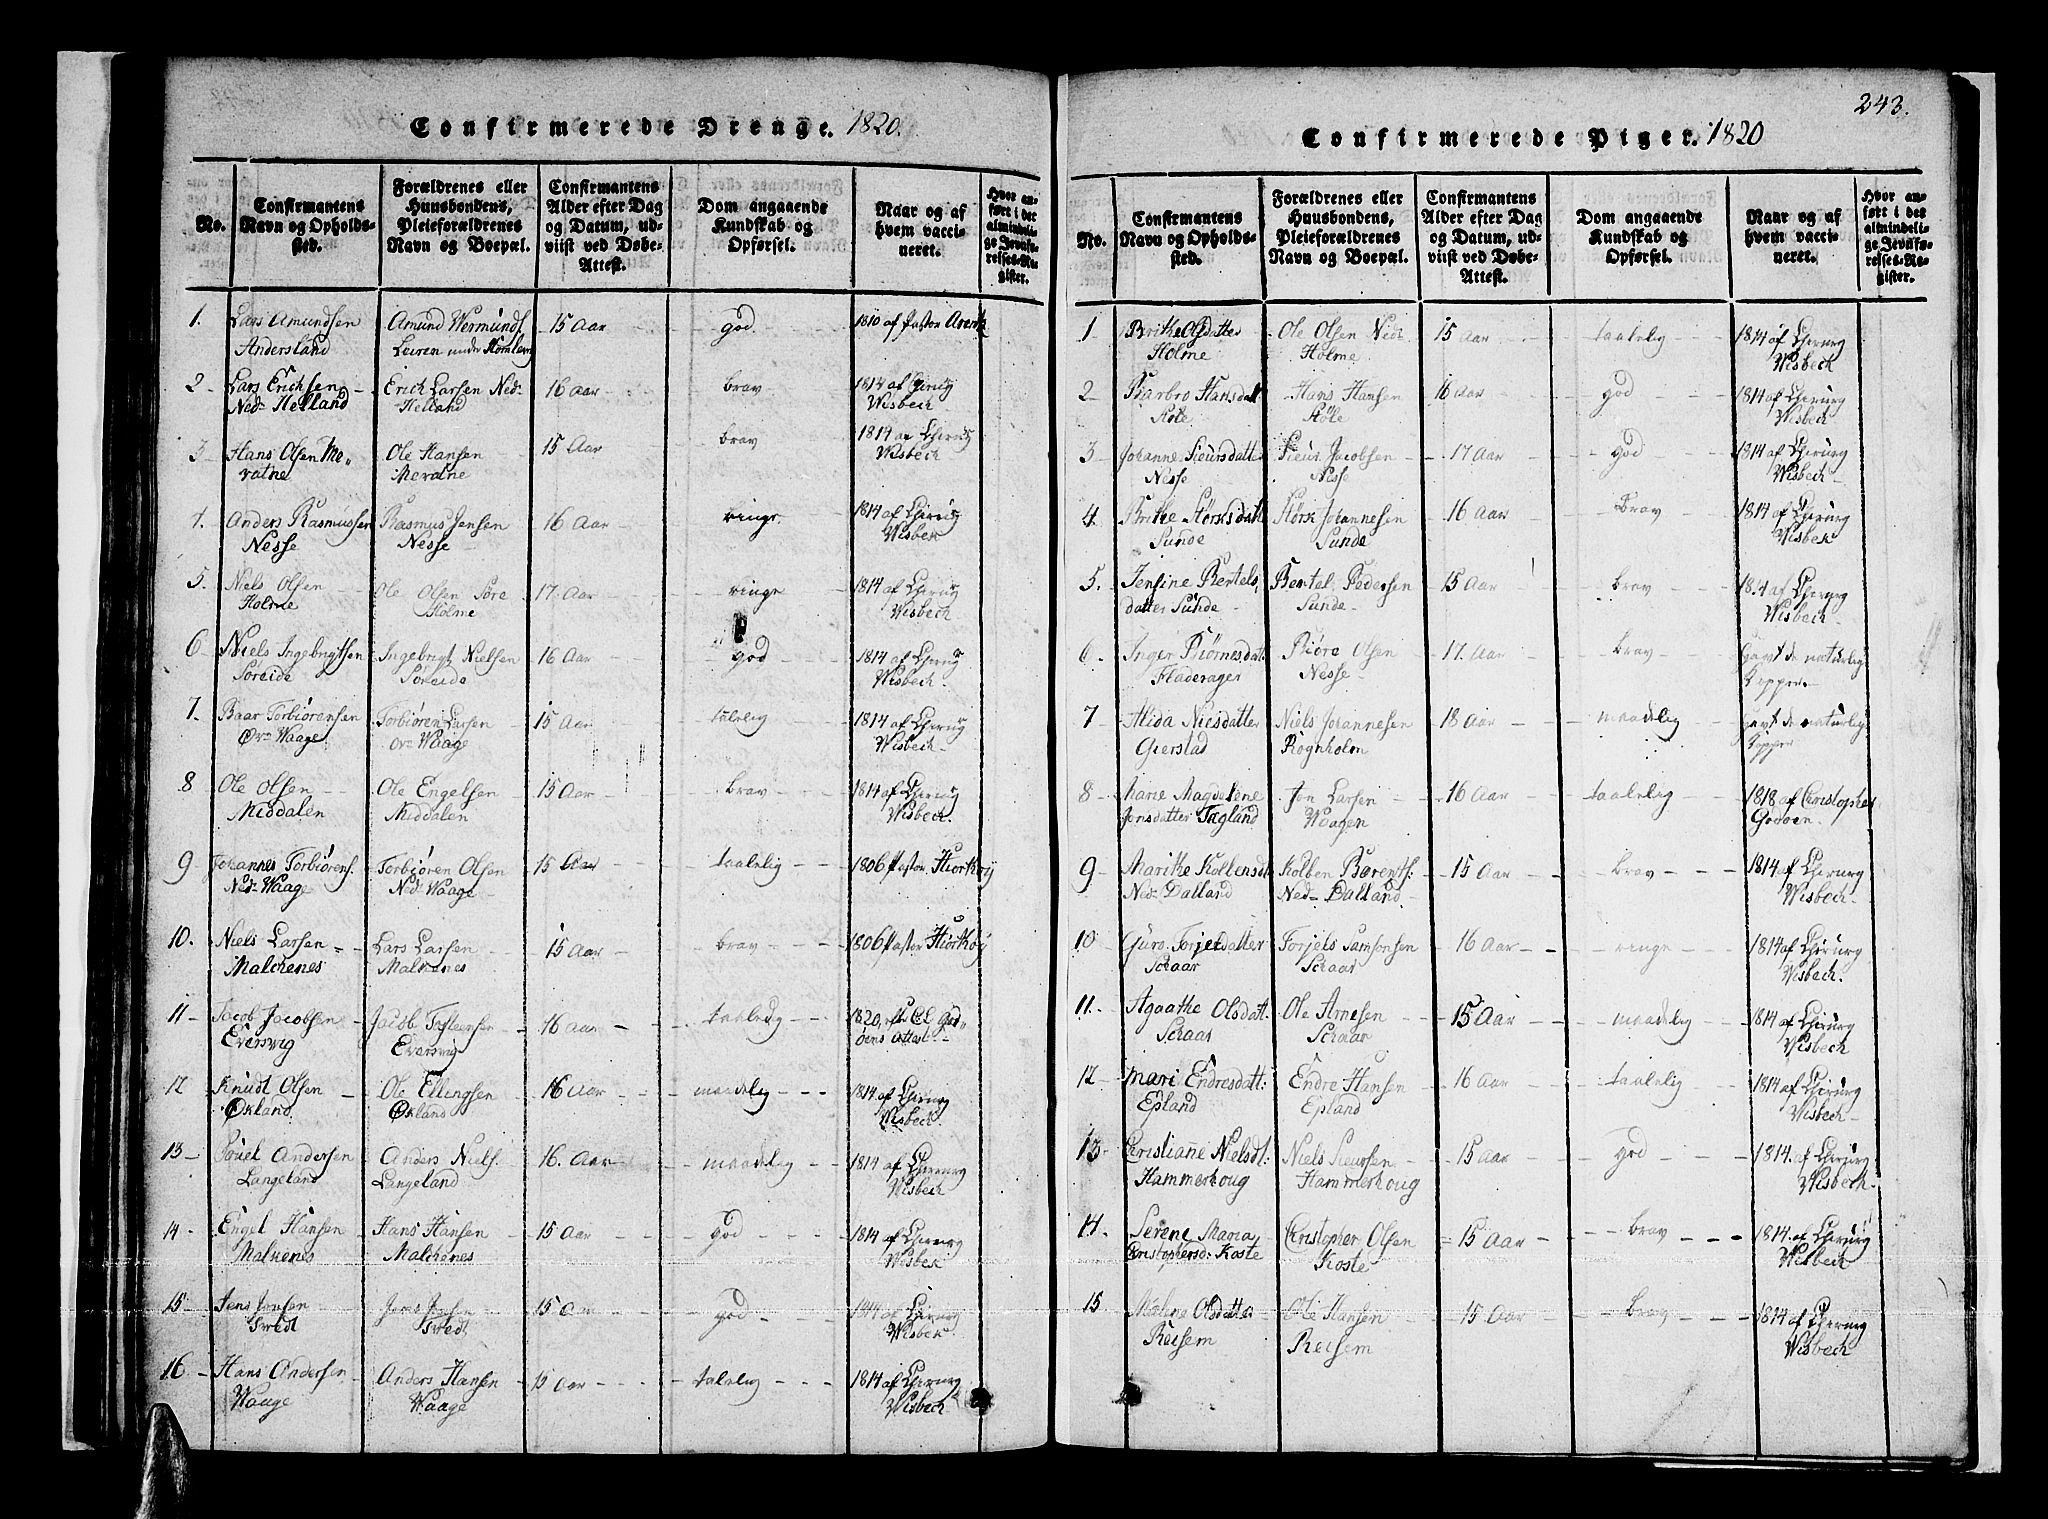 Confirmerede Drenge. 1820.
No.
Confirmantens Navn og Opholdssted.
Forældrenes eller Huusbondens, Pleieforældrenes Navn og Boepæl.
Confirmantens Alder efter Dag og Datum, udviist ved Døbe-Attest.
Dom angaaende Kundskab og Opførsel.
Naar og af hvem vaccineret.
Hvor anført i det almindelige Jevnførelses-Register.
1. Lars Amundsen Amund Wermunds. 15 Aar god. 1810 af Pastor
Andersland Leiren under
2 Lars Erichsen Erich Larsen Ned- 16 Aar brav 1814 af Chirurg
Ned- Helland Helland Wisbech
3 Hans Olsen Me- Ole Hansen 15 Aar brav 1814 af Chirurg
vatne Mevatne Wisbech
4. Anders Rasmussen Rasmus Jensen 16 Aar ringe 1814 af Chirurg
Nesse Nesse Wisbek
5. Niels Olsen Ole Olsen Søre 17 Aar ringe 1814 af Chirurg
Holme Holme Wisbech
6 Niels Ingebrigtsen Ingebrigt Nielsen 16 Aar god 1814 af Chirurg
Søreide Søreide Wisbech
7. Baar Torbiørensen Torbiøren Larsen 15 Aar talelig 1814 af Chirurg
Øvre Waage Øvre Waage Wisbech
8 Ole Olsen Ole Engelsen 15 Aar brav 1814 af Chirurg
Middalen Middalen Wisbech
9 Johannes Torbiørens. Torbiøren Olsen 15 Aar taalelig 1806 Pastor Hiorthøy
Ned- Waage Ned- Waage
10. Niels Larsen Lars Larsen 15 Aar brav 1806 Pastor Hiorthøy
Malchenes Malkenes
11 Jacob Jacobsen Jacob 16 Aar taaleldig 1820,
Eversvig Eversvig attest
12 Knudt Olsen Ole Ellingsen 16 Aar maadelig 1814 af Chirurg
Økland Økland Wisbech
13 Povel Andersen Anders Niels. 16. Aar maadelig 1814 af Chirurg
Langeland Langeland Wisbech
14 Engel Hansen Hans Hansen 15 Aar god 1814 af Chirurg
Malkenes Malchenes Wisbek
15 Jens Jensen Jens Jensen 15 Aar god 1814 af Chirurg
Tvedt Tvedt Wisbek
16 Hans Andersen Anders Hansen 15 Aar talelig 1814 af Chirurg
Waage Waage Wisbech
243.
Confirmerede Piger. 1820
No.
Confirmantens Navn og Opholdssted.
Forældrenes eller Huusbondens, Pleieforældrenes Navn og Boepæl.
Confirmantens Alder efter Dag og Datum, udviist ved Døbe-Attest.
Dom angaaende Kundskab og Opførsel.
Naar og af hvem vaccineret.
Hvor anført i det almindelige Jevnførelses-Register.
1 Brithe Olsdatter Ole Olsen Ned- 15 Aar taalelig 1814 af Chirurg
Holme Holme Wisbech
2 Barbro Hansdatt Hans Hansen 16 Aar god 1814 af Chirurg
Wisbech
3 Johanne Sieursdatter Sieur Jacobsen 17 Aar god 1814 af Chirurg
Nesse Nesse Wisbech
4. Brithe Størksdatt Størk Johannesen 16 Aar Brav 1814 af Chirurg
Sunde Sunde Wisbek
5. Jensine Bertels, Bertel Pedersen 15 Aar brav 1814 af Chirurg
datter Sunde Sunde Wisbech
6. Inger Biørnesdat. Biøre Olsen 17. Aar brav havt de naturlig
Fladerager Nesse Kopper
7 Alida Niesdatter Niels Johannesen 18 Aar maadelig havt de naturlig
Gierstad Rognholm Kopper
8 Marie Magdelene Jon Larsen 16 Aar taalelig 1818 af Christopher
Jonsdatter Tagland Waagen Godøen
9 Marithe Kolbensdt. Kolben Børents. 15 Aar brav 1814 af Chirurg
Ned- Dalland Ned- Dalland Wisbech
10 Guro Torjelsdatter Torjels Samsonsen 16 Aar ringe 1814 af Chirurg
Schaar Schaar Wisbech
11. Agaathe Olsdatt. Ole Arnesen 15 Aar maadelig 1814 af Chirurg
Schaar Schaar Wisbech
12 Mari Endresdatt: Endre Hansen 16 Aar taalelig 1814 af Chirurg
Epland Epland Wisbech
13 Christiane Nielsdt: Niels Sieursen 15 Aar god 1814. af Chirurg
Hammerhoug Hammerhoug Wisbech
14. Serene Maria Christopher Olsen 15 Aar brav 1814. af Chirurg
Christophersd: Koste Koste Wisbech
15 Malena Olsdatter Ole Hansen 15 Aar brav 1814 af Chirurg
Reisem Reisem Wisbech